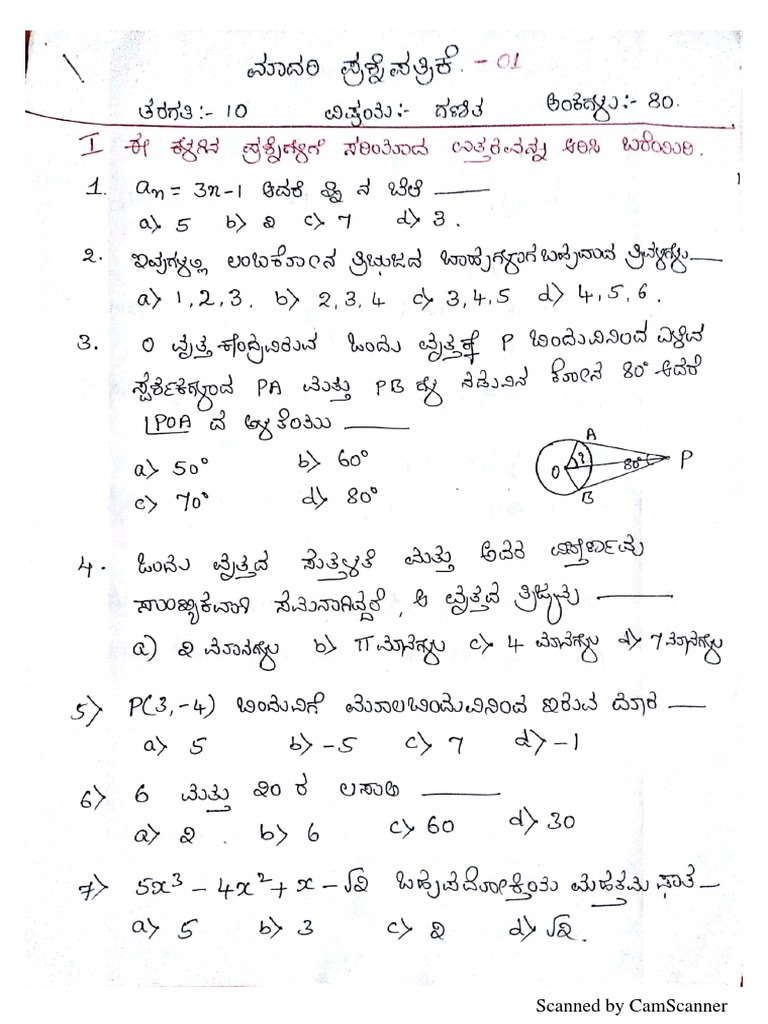 ಮಾದರಿ ಪ್ರಶ್ನೆಪತ್ರಿಕೆ. - 01
ತರಗತಿ :- 10 ವಿಷಯ :- ಗಣಿತ ಅಂಕಗಳು :- 80.
I ಈ ಕೆಳಗಿನ ಪ್ರಶ್ನೆಗಳಿಗೆ ಸರಿಯಾದ ಉತ್ತರವನ್ನು ಆರಿಸಿ ಬರೆಯಿರಿ.
1. aₙ = 3n-1 ಆದರೆ ನ ಬೆಲೆ ——
a) 5 b) 2 c) 7 d) 3.
2. ಇವುಗಳಲ್ಲಿ ಲಂಬಕೋನ ತ್ರಿಭುಜದ ಬಾಹುಗಳಾಗಬಹುದಾದ ತ್ರಿವಳಿಗಳು ——
a) 1, 2, 3. b) 2, 3, 4 c) 3, 4, 5 d) 4, 5, 6.
3. O ವೃತ್ತ ಕೇಂದ್ರವಿರುವ ಒಂದು ವೃತ್ತಕ್ಕೆ P ಬಿಂದುವಿನಿಂದ ಎಳೆದ
ಸ್ಪರ್ಶಕಗಳಾದ PA ಮತ್ತು PB ಗಳ ನಡುವಿನ ಕೋನ 80° ಆದರೆ
∠POA ದ ಅಳತೆಯು ——
a) 50° b) 60°
c) 70° d) 80°
A
O ? 80° P
B
4. ಒಂದು ವೃತ್ತದ ಸುತ್ತಳತೆ ಮತ್ತು ಅದರ ವಿಸ್ತೀರ್ಣವು
ಸಾಂಖ್ಯಿಕವಾಗಿ ಸಮನಾಗಿದ್ದರೆ, ಆ ವೃತ್ತದ ತ್ರಿಜ್ಯವು ——
a) 2 ಮಾನಗಳು b) π ಮಾನಗಳು c) 4 ಮಾನಗಳು d) 7 ಮಾನಗಳು
5) P(3, -4) ಬಿಂದುವಿಗೆ ಮೂಲಬಿಂದುವಿನಿಂದ ಇರುವ ದೂರ ——
a) 5 b) -5 c) 7 d) -1
6) 6 ಮತ್ತು 20 ರ ಲಸಾಅ ——
a) 2. b) 6 c) 60 d) 30
7) 5x³ - 4x² + x - √2 ಬಹುಪದೋಕ್ತಿಯ ಮಹತ್ತಮ ಘಾತ —
a) 5 b) 3 c) 2 d) √2.
Scanned by CamScanner